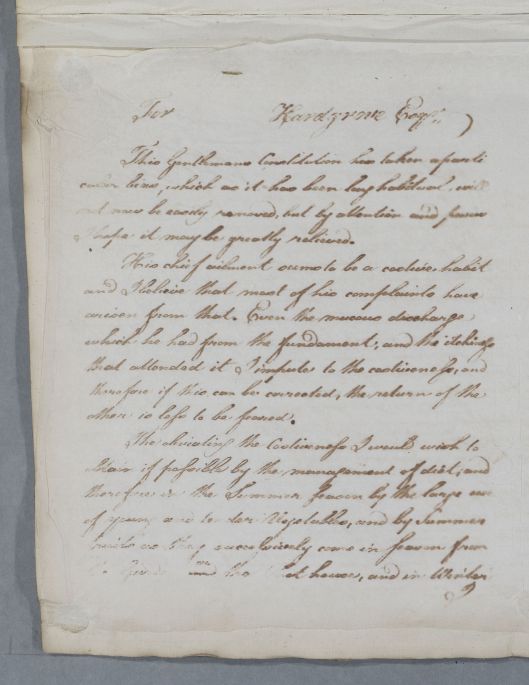 For Hardgrove Esqr.
This Gentlemans Constitution has taken a parti
cular bias, which as it has been long habitual, will
not now be easily removed, but by attention and
I hope it may be greatly relieved.
His chief ailment seems to be a costive habit
and I believe that most of his complaints have
arisen from that. Even the mucous discharge
which he had from the fundament, and the itchiness
that attended it I impute to the costiveness, and
therefore if this can be corrected, the return of the
other is less to be feared.
The obviating the Costiveness I would wish to
obtain if possible by the management of diet, and
therefore in the Summer season by the large use
of young and tender Vegetables, and by Summer
fruits as they successively come in season from
the and the Hot house, and in Winter